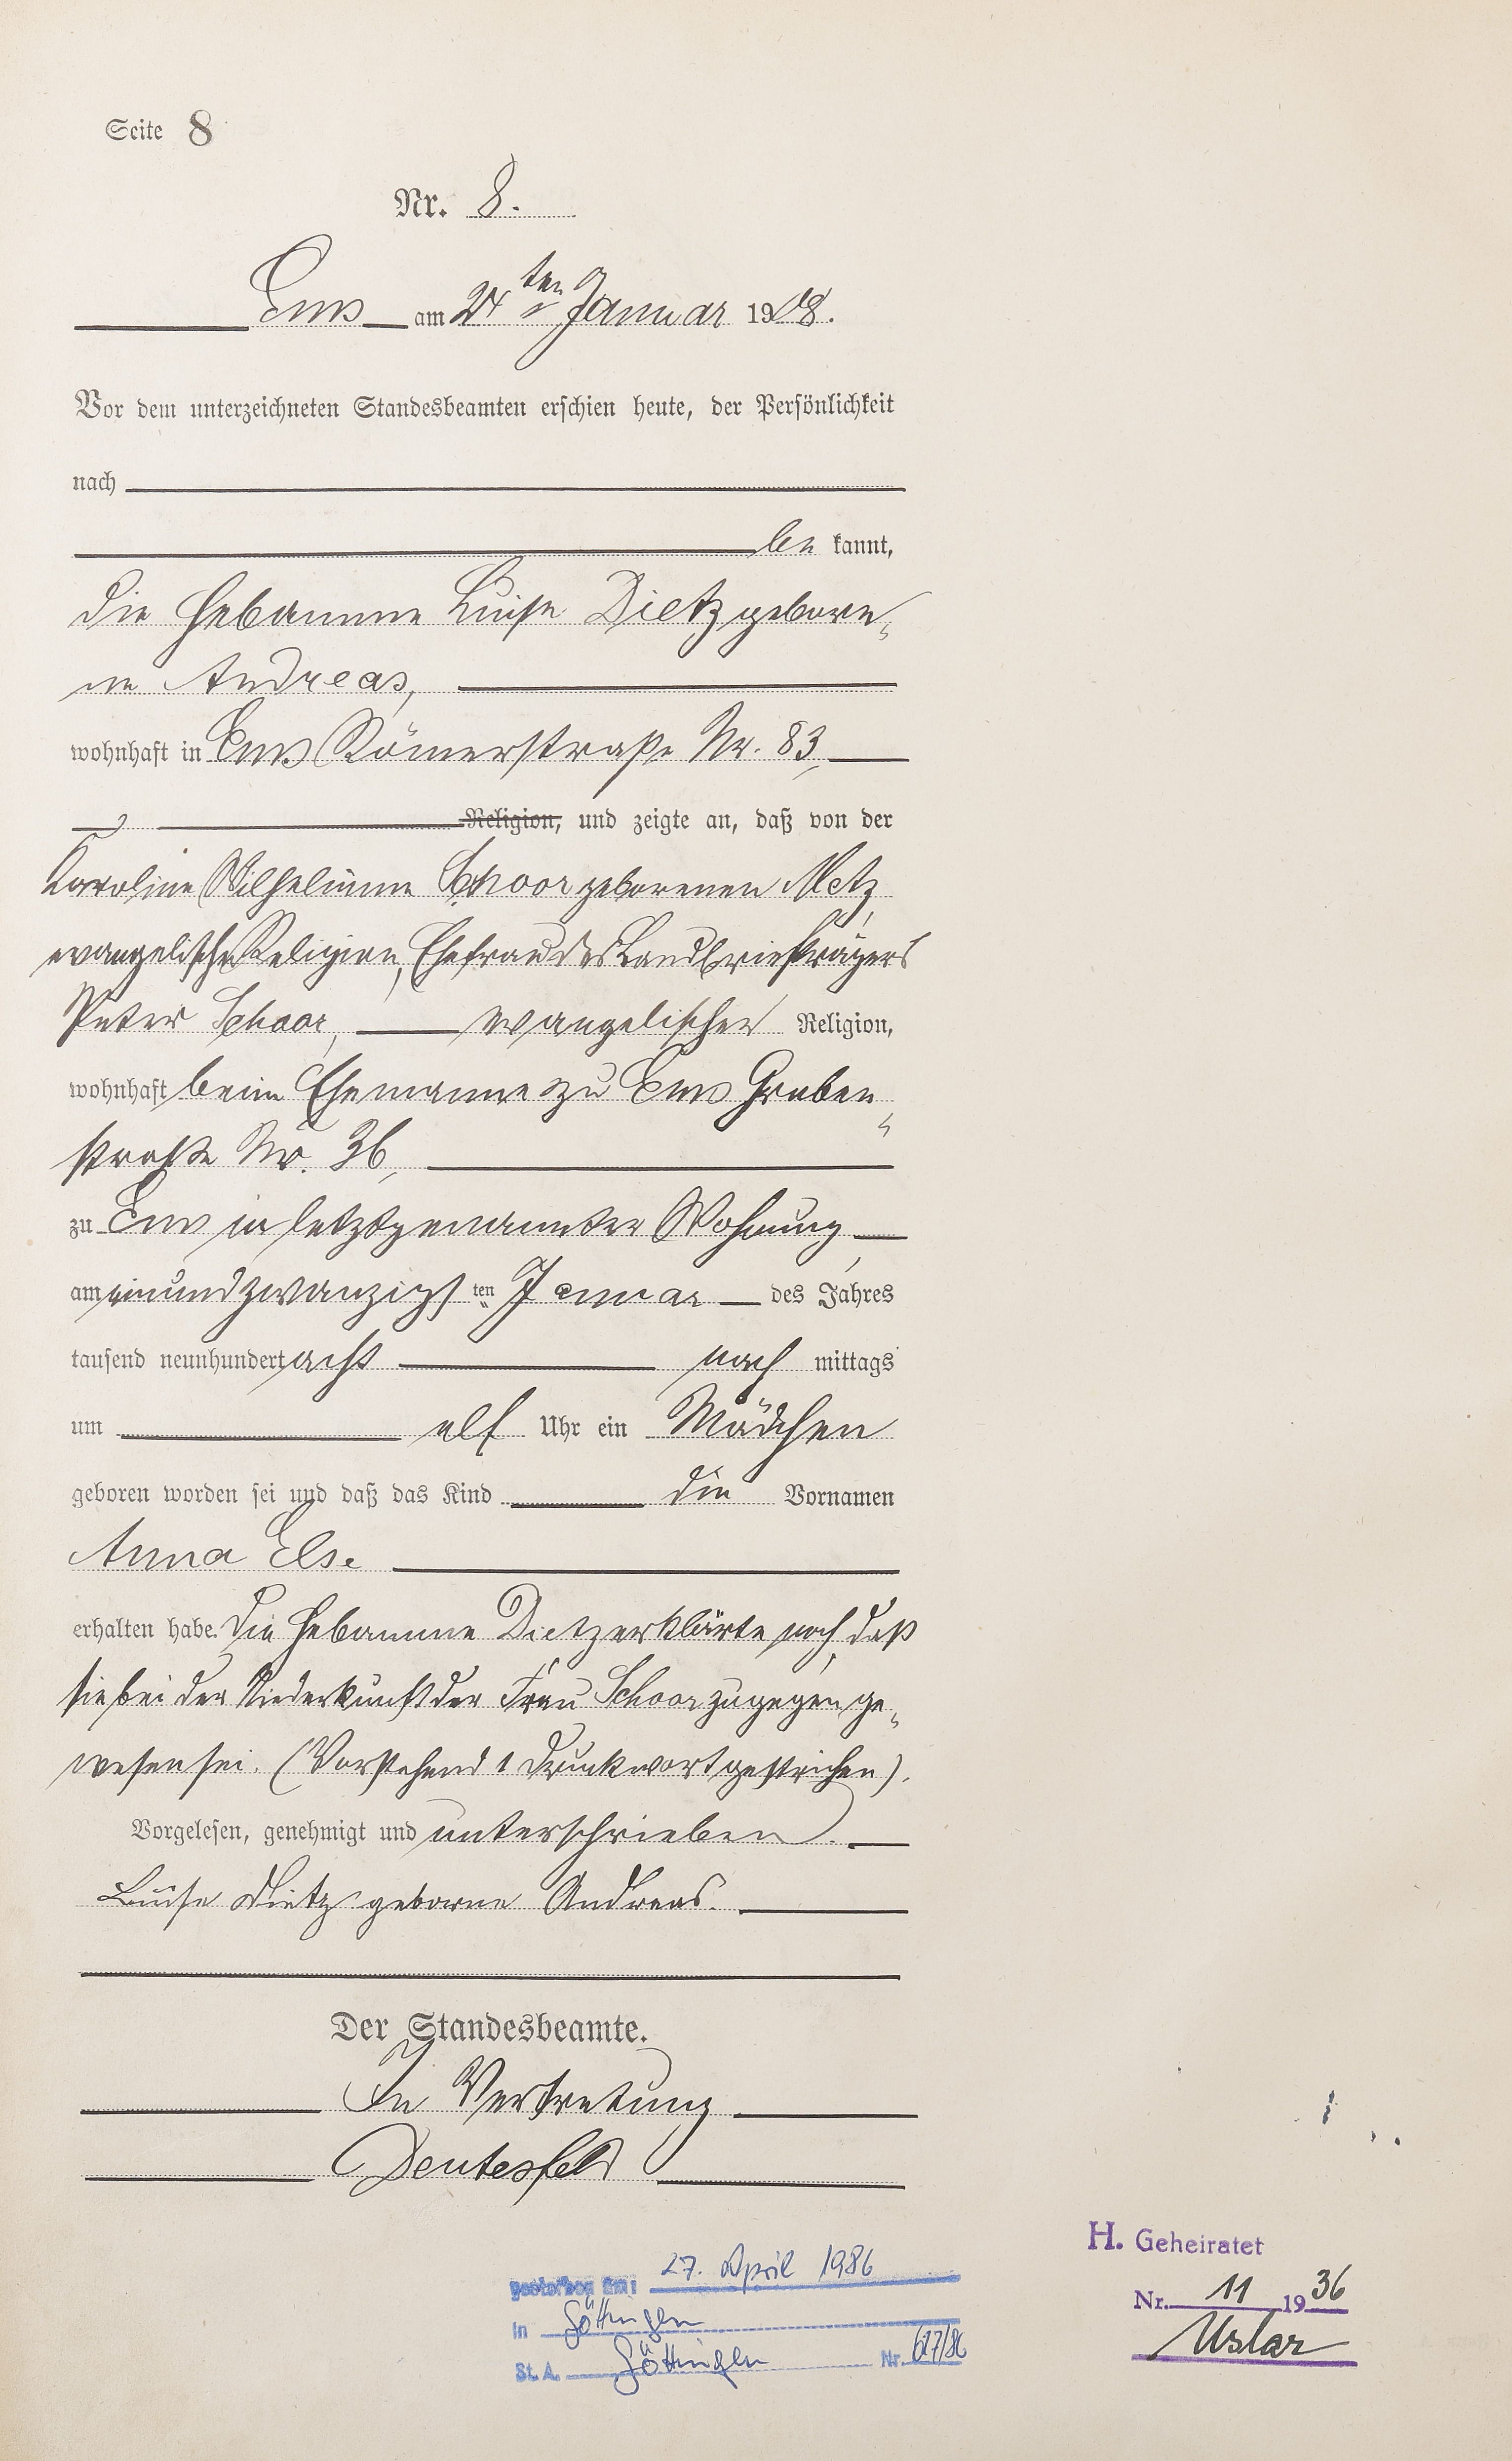 Seite 8
Nr. 8.
Ems am 24ten Januar 1908.
Vor dem unterzeichneten Standesbeamten erschien heute, der Persönlichkeit
nach
be kannt,
die Hebamme Luise Dietz gebore-
ne Andreas,
wohnhaft in Ems Römerstraße Nr. 83,
Religion, und zeigte an, daß von der
Karoline Wilhelmine Schoor geborenen Metz,
evangelischer Religion, Ehefrau des Landbriefträgers
Peter Schoor, evangelischer Religion,
wohnhaft beim Ehemanne zu Ems Graben-
straße Nr. 36,
zu Ems in letztgenannter Wohnung,
am einundzwanzigsten Januar des Jahres
tausend neunhundert acht nach mittags
um elf Uhr ein Mädchen
geboren worden sei und daß das Kind die Vornamen
Anna Else
erhalten habe. Die Hebamme Dietz erklärte noch, daß
sie bei der Niederkunft der Frau Schoor zugegen ge-
wesen sei. (Vorstehend 1 Druckwort gestrichen).
Vorgelesen, genehmigt und unterschrieben.
Luise Dietz geborne Andreas.
Der Standesbeamte.
In Vertretung
Deutesfeld
gestorben am: 27. April 1986
in Göttingen
St. A. Göttingen Nr. 617/86
H. Geheiratet
Nr. 11 1936
Uslar